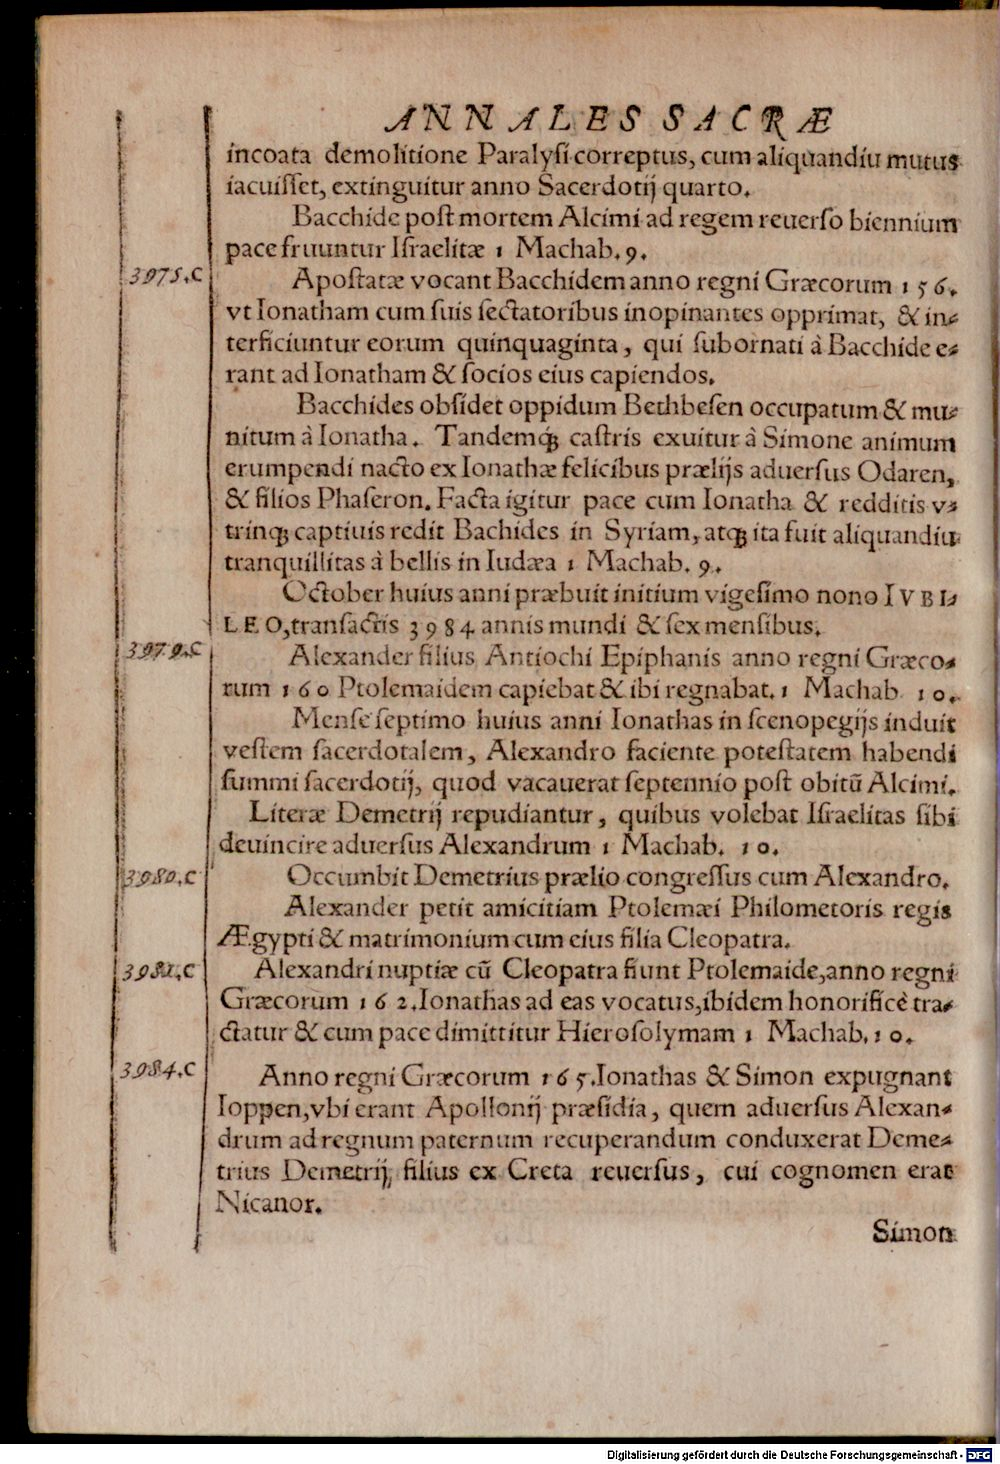 ANNALES SACRÆ
incoata demolitione Paralysi correptus, cum aliquandiu mutus
iacuisset, extinguitur anno Sacerdotij quarto.
Bacchide post mortem Alcimi ad regem reuerso biennium
pace fruuntur Israelitæ 1 Machab. 9.
3975.C Apostatæ vocant Bacchidem anno regni Græcorum 156.
vt Ionatham cum suis sectatoribus inopinantes opprimat, & in-
terficiuntur eorum quinquaginta, qui subornati à Bacchide e-
rant ad Ionatham & socios eius capiendos.
Bacchides obsidet oppidum Bethbesen occupatum & mu-
nitum à Ionatha. Tandemq́; castris exuitur à Simone animum
erumpendi nacto ex Ionathæ felicibus prælijs aduersus Odaren,
& filios Phaseron. Facta igitur pace cum Ionatha & redditis v-
trinq; captiuis redit Bachides in Syriam, atq; ita fuit aliquandiu
tranquillitas à bellis in Iudæa 1 Machab. 9.
October huius anni præbuit initium vigesimo nono IVBI-
LEO, transactis 3984 annis mundi & sex mensibus.
3979.C Alexander filius Antiochi Epiphanis anno regni Græco-
rum 160 Ptolemaidem capiebat & ibi regnabat. 1 Machab 10.
Mense septimo huius anni Ionathas in scenopegijs induit
vestem sacerdotalem, Alexandro faciente potestatem habendi
summi sacerdotij, quod vacauerat septennio post obitũ Alcimi.
Literæ Demetrij repudiantur, quibus volebat Israelitas sibi
deuincire aduersus Alexandrum 1 Machab. 10.
3980.C Occumbit Demetrius prælio congressus cum Alexandro.
Alexander petit amicitiam Ptolemæi Philometoris regis
Ægypti & matrimonium cum eius filia Cleopatra.
3981.C Alexandri nuptiæ cũ Cleopatra fiunt Ptolemaide, anno regni
Græcorum 162. Ionathas ad eas vocatus, ibidem honorificè tra-
ctatur & cum pace dimittitur Hierosolymam 1 Machab. 10.
3984.C Anno regni Græcorum 165. Ionathas & Simon expugnant
Ioppen, vbi erant Apollonij præsidia, quem aduersus Alexan-
drum ad regnum paternum recuperandum conduxerat Deme-
trius Demetrij filius ex Creta reuersus, cui cognomen erat
Nicanor.
Simon
Digitalisierung gefördert durch die Deutsche Forschungsgemeinschaft - DFG